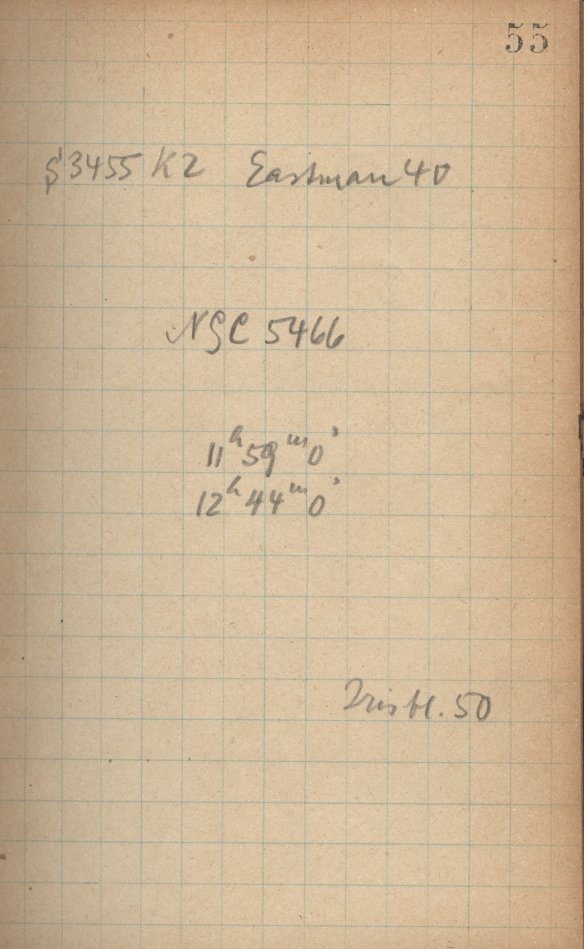 55
S 3455 K2 Eastman 40
NGC 5466
11h 59m 0s
12h 44m 0s
Irisbl. 50